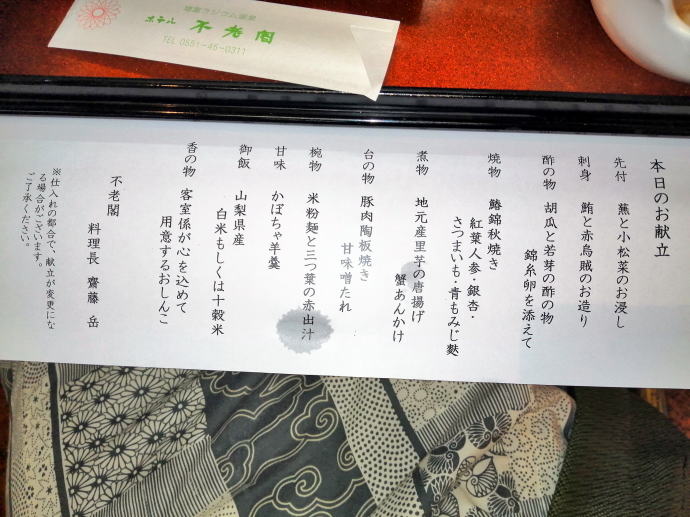 増富ラジウム温泉
ホテル 不老閣
TEL 0551-45-0311
本日のお献立
先付 蕪と小松菜のお浸し
刺身 鮪と赤烏賊のお造り
酢の物 胡瓜と若芽の酢の物
錦糸卵を添えて
焼物 鰆錦秋焼き
紅葉人参・銀杏・
さつまいも・青もみじ麩
煮物 地元産里芋の唐揚げ
蟹あんかけ
台の物 豚肉陶板焼き
甘味噌たれ
椀物 米粉麺と三つ葉の赤出汁
甘味 かぼちゃ羊羹
御飯 山梨県産
白米もしくは十穀米
香の物 客室係が心を込めて
用意するおしんこ
不老閣
料理長 齋藤 岳
※仕入れの都合で、献立が変更にな
る場合がございます。
ご了承ください。